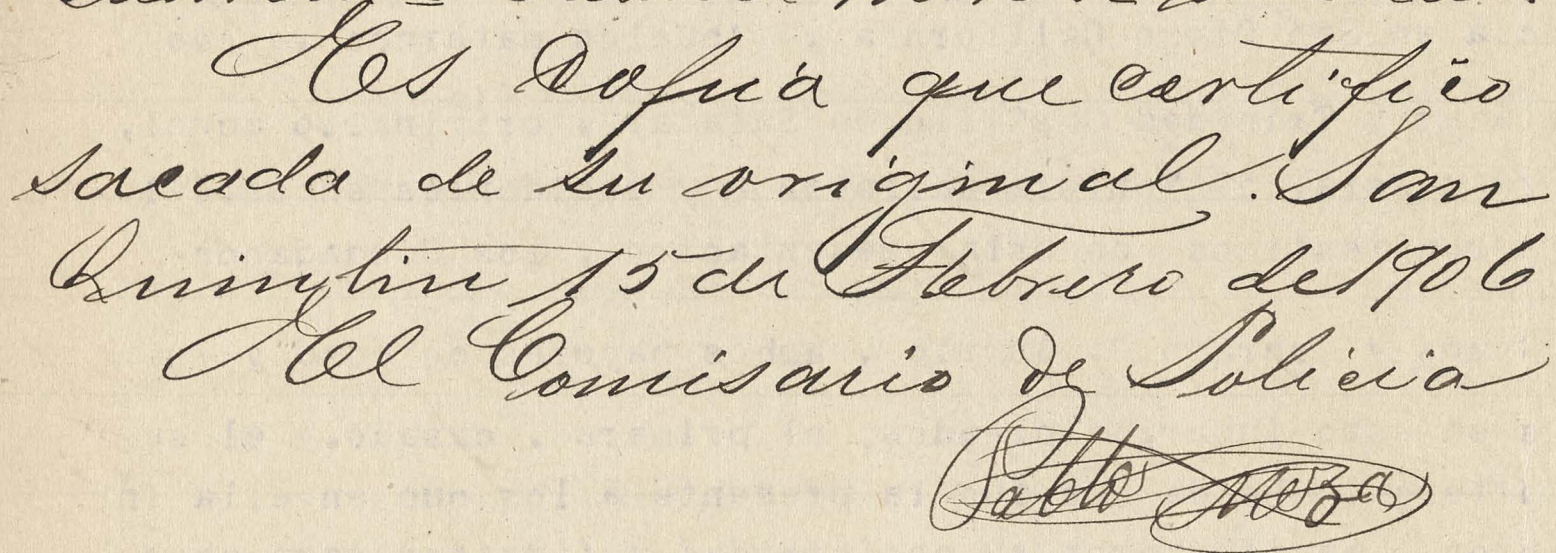 Es Copia que certifico
sacada de su original. San
Quinytin 15 de Febrero de 1906
El Comisario de Policia
Pablo Meza